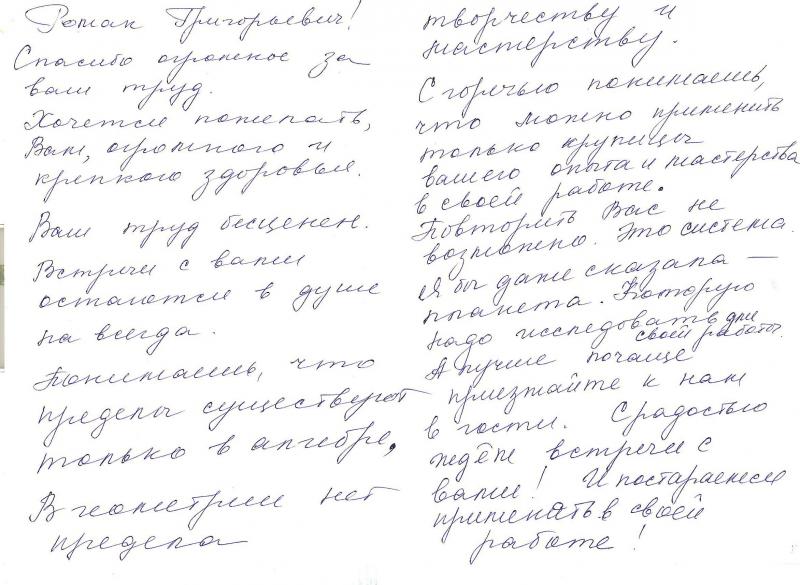 Роман Григорьевич!
Спасибо огромное за
ваш труд.
Хочется пожелать,
Вам, огромного и
крепкого здоровья.
Ваш труд бесценен.
Встречи с вами
остаются в душе
на всегда.
Понимаешь, что
пределы существуют
только в алгебре,
В геометрии нет
предела
творчеству и
мастерству.
С горечью понимаешь,
что можно применить
только крупицы
вашего опыта и мастерства
в своей работе.
Повторить Вас не
возможно. Это система.
Я бы даже сказала —
планета. Которую
надо исследовать для
своей работы.
А лучше почаще
приезжайте к нам
в гости. С радостью
ждём встречи с
вами! И постараемся
применять в своей
работе!